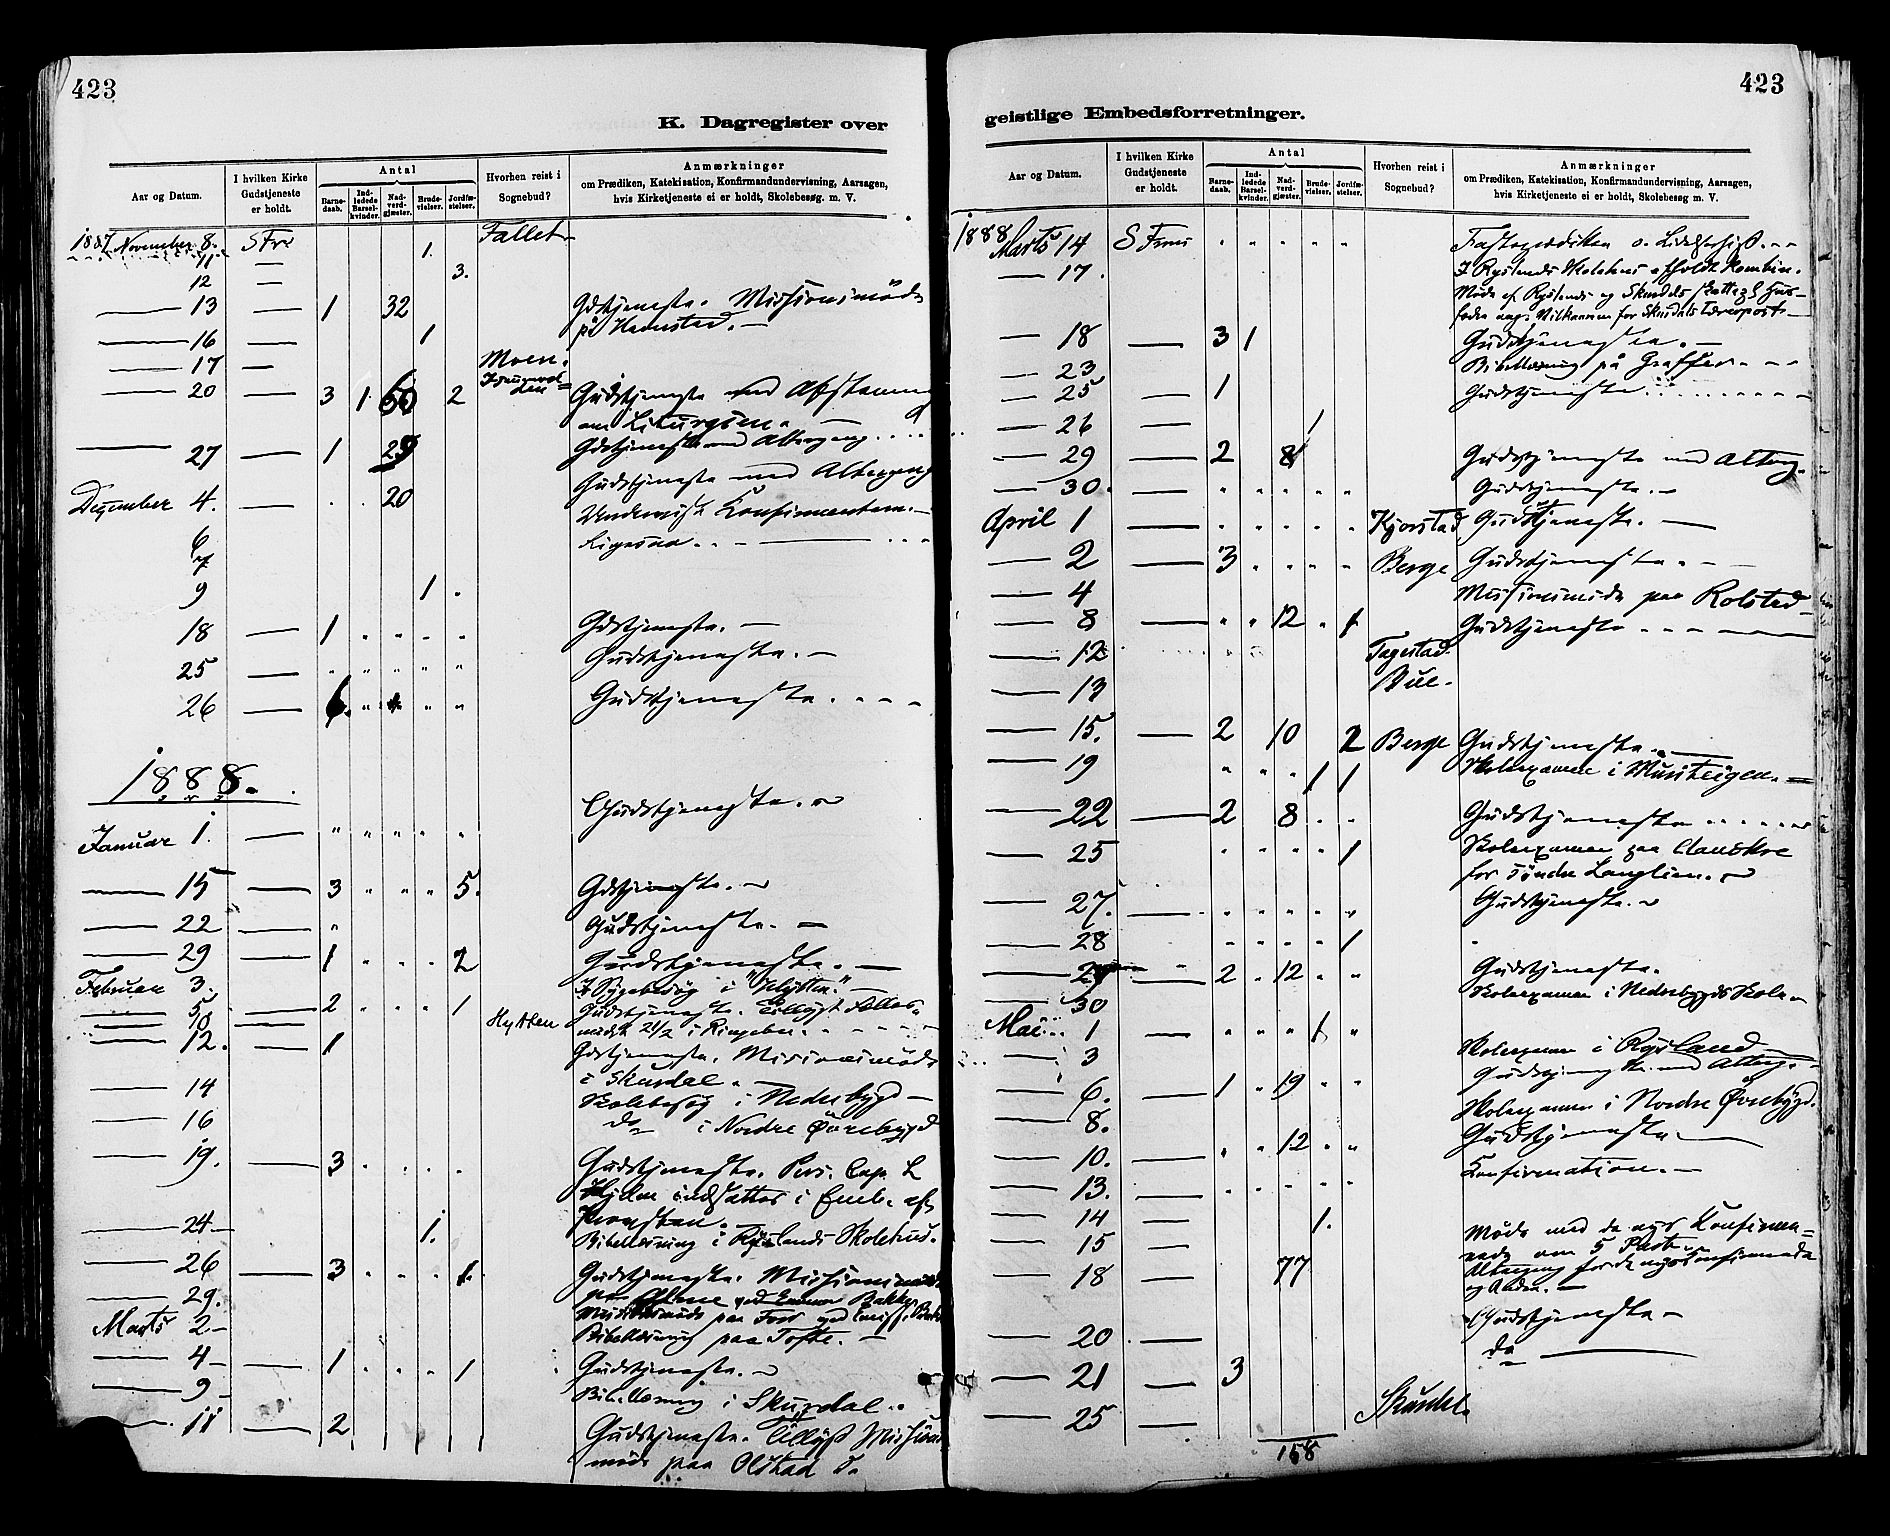 423
K. Dagregister over
Aar og Datum.
I hvilken Kirke Gudstjeneste er holdt.
Antal
Barne-daab.
Ind-ledede Barsel-kvinder.
Nad-verd-gjæster.
Brude-vielser.
Jordfæ-stelser.
Hvorhen reist i Sognebud?
Anmærkninger
om Prædiken, Katekisation, Konfirmandundervisning, Aarsagen,
hvis Kirketjeneste ei er holdt, Skolebesøg. m. V.
1887 November 8. S Fre 1. Fallet
11 — 3.
12 —
— 13 — 1 32 Gdstjeneste. Missionsmøde
på
— 16 — 1
— 17 — Moen.
— 20 — 3 1 60 2 Gudstjeneste med Afstemning
om Liturgien. —
— 27 — 1 29 Gdstjeneste med Altergang
Dezember 4. — 20 Gudstjeneste med Altergang
Konfirmantern.
6 Ligesaa
7
9 1
18 — 1 " " " " Gdstjeneste. —
25 — " " " " " Gudstjeneste. —
26 — 6. " " " Gudstjeneste.
1888.
Januar 1. — " " " " " Gudstjeneste.
— 15 — 3 " " " 5. Gdstjeneste.
— 22 — " Gudstjeneste. —
— 29 — 1 " " " 2 Gudstjeneste. —
Februar 3. Sygebesøg i "Hytten". —
— 5 — 2 " " " 1 Gudstjeneste.
— 10 — Hytten 21/2 i Ringebu.
— 12. — 1 Gdstjeneste. Missionsmøde
i Skurdal. —
— 14 Skolebesøg i Nederbygd —
— 16 do i Nordre Øvrebygd
— 19. — 3 Gudstjeneste. Pers. Cap. L
indsattes i Emb. af
Provsten.
— 24 — 1. Bibellæsning i Ryslands Skolehus.
— 26 — 3 1. Gudstjeneste. Missionsmøde
— 29.
Marts 2 — Bibellæsning paa Tofte. —
— 4 — 1 1 Gudstjeneste.
— 9 — Bibellæsning i Skurdal.
— 11 — 2 Gudstjeneste. Tillyst Missions
møde paa Olstad
423
geistlige Embedsforretninger.
Aar og Datum.
I hvilken Kirke Gudstjeneste er holdt.
Antal
Barne-daab.
Ind-ledede Barsel-kvinder.
Nad-verd-gjæster.
Brude-vielser.
Jordfæ-stelser.
Hvorhen reist i Sognebud?
Anmærkninger
om Prædiken, Katekisation, Konfirmandundervisning, Aarsagen,
hvis Kirketjeneste ei er holdt, Skolebesøg m. V.
1888 Marts 14 S Frons " " " " " Fasteprædiken o.
— 17. I Ryslands afholdt Kombin.
Møde af Ryslands og Skurdals
for Skurdals Lærerpost
— 18 — 3 1 Gudstjeneste. —
— 23 Bibellæsning på Graffer
— 25 — 1 Gudstjeneste
— 26 — 1
— 29 — 2 8 Gudstjeneste med Alterg.
— 30. — " " " " " Gudstjeneste. —
April 1 — " " " " " Kjorstad Gudstjeneste. —
— 2 — 3 " " " " Berge Gudstjeneste. —
— 4 Missionsmøde paa Rolstad
— 8 — " " 12 " 1 Gudstjeneste
— 12 Tagestad.
— 13 Bue.
— 15. — 2 10 2 Berge Gudstjeneste.
— 19 " " " 1 1 Skoleexamen i
— 22 — 2 8 " " Gudstjeneste
— 25 " " " " 1 Skoleexamen paa
for Søndre
— 27. — " " " " " Gudstjeneste.
— 28 " " " " 1
— 29 " 2 " 12 " " Gudstjeneste.
— 30 Skoleexamen i Nederbygds Skole
Mai 1 — " " " 1 "
— 3 Skoleexamen i Rysland
— 6. — 1 " 19 " " Gudstjeneste med Alterg.
— 8. Skoleexamen i Nordre Øvrebygd.
— 10. — " " 12 " " Gudstjeneste
— 13. — " " " " " Konfirmation. —
— 14 — 1.
— 15 — Møde med de nys Konfirme-
rede om
— 18 — 77 Altergang for de nys Konfirmerede
og Andre. —
— 20 — Gudstjeneste —
— 21 — 3 do —
— 25 — Skurdal.
158